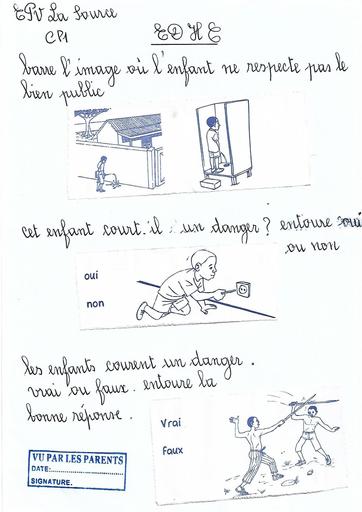 EPV La Source
CP1
EDHC
barre l'image où l'enfant ne respecte pas le
bien public
cet enfant court.il un danger ? entoure oui
ou non
oui
non
les enfants courent un danger.
vrai ou faux. entoure la
bonne réponse.
Vrai
Faux
VU PAR LES PARENTS
DATE:
SIGNATURE.